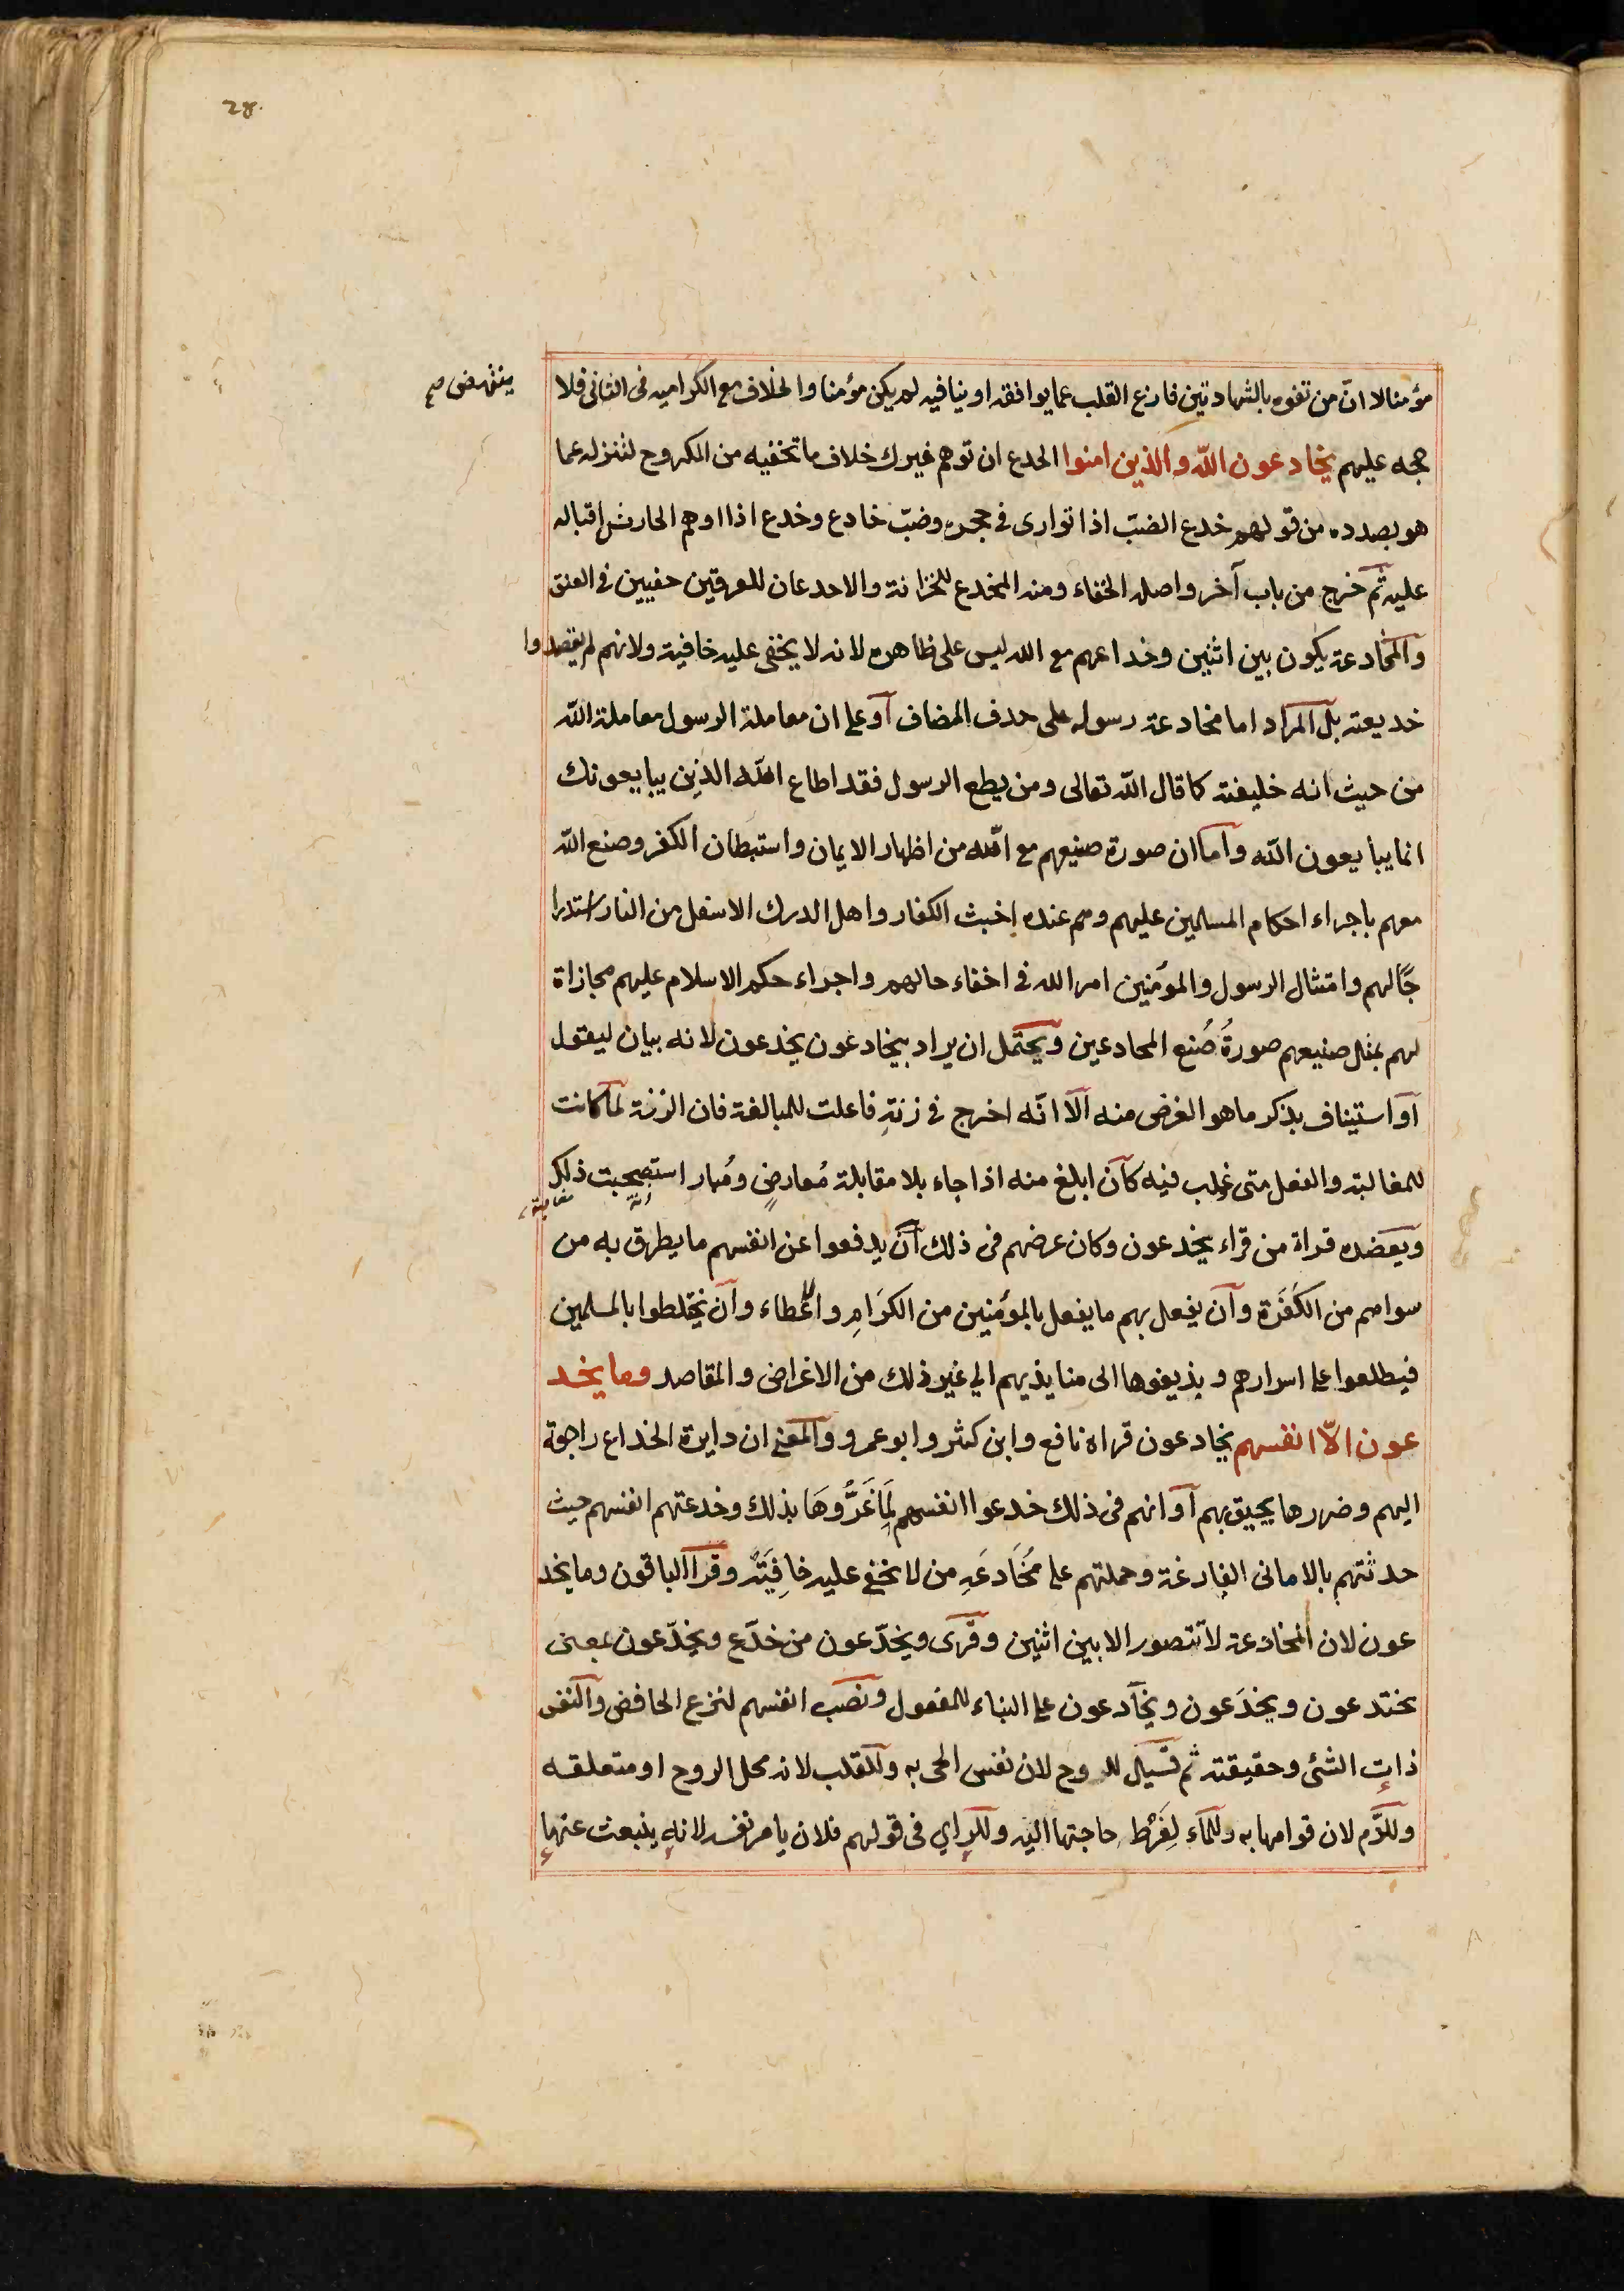 28.
مؤمنا لا انّ من تفوه بالشهادتين فارغ القلب عما يوافقه او ينافيه لم يكن مؤمنا والخلاف مع الكرامية فى الثانى فلا
ينتهض صح
حجه عليهم يخادعون اللّه والذين امنوا الخدع ان توهم غيرك خلاف ما تخفيه من المكروح لتنزله عما
هو بصدده من قولهم خدع الضبّ اذا توارى فى جحره وضبّ خادع وخدع اذا اوهم الحارش اقباله
عليه ثم خرج من باب آخر واصله الخفاء ومنه المخدع للخزانة والاخدعان للعرقين خفيين فى العنق
والمخادعة يكون بين اثنين وخداعهم مع الله ليس على ظاهره لانه لا يخفى عليه خافية ولانهم لم يقصدوا
خديعته بل المراد اما مخادعة رسوله على حذف المضاف آو على ان معاملة الرسول معاملة اللّه
من حيث انه خليفته كما قال اللّه تعالى ومن يطع الرسول فقد اطاع اللّه الذين يبايعونك
انما يبايعون اللّه وآما ان صورة صنيعهم مع اللّه من اظهار الايمان واستبطان الكفر وصنع اللّه
معهم باجراء احكام المسلمين عليهم وهم عنده اخبث الكفار واهل الدرك الاسفل من النار استدرا
جًا لهم وامتثال الرسول والمؤمنين امر الله فى اخفاء حالهم واجراء حكم الاسلام عليهم مجازاة
لهم بمثل صنيعهم صورةُ صُنع المخادعين ويحتمل ان يراد بيخادعون يخدعون لانه بيان ليقول
آو استيناف بذكر ما هو الغرض منه آلا انّه اخرج فى زنةِ فاعلت للمبالغة فان الزنة لمآ كانت
للمغالبة والفعل متى غولب فيه كآن ابلغ منه اذا جاء بلا مقابلة مُعارضٍ ومُبار استصحبت ذلك
ويعضده قراة من قراء يخدعون وكان غرضهم فى ذلك آن يدفعوا عن انفسهم ما يطرق به من
سواهم من الكَفَرَة وآن يفعل بهم ما يفعل بالمؤمنين من الكرَامِ والاعطاء وآن يختلطوا بالمسلمين
فيطلعوا على اسرارهم ويذيعوها الى منابذيهم الي غير ذلك من الاغراض والمقاصد وما يخد
عون الّا انفسهم يخادعون قراه نافع وابن كثير وابو عمرو والمعنى ان دايرة الخداع راجعة
اليهم وضررها يحيق بهم آو انهم فى ذلك خدعوا انفسهم لِمَا غَرُّوهَا بذلك وخدعتهم انفسهم حيث
حدثتهم بالامانى الفارغة وحملتهم على مُخَادعَةِ من لا يخفى عليه خافِيَةٌ وقرآ الباقون وما يخد
عون لان المخادعة لا تتصور الا بين اثنين وقرى ويخدّعون من خدّع ويخِدّعون بمعنى
يختدعون ويخدَعون ويخآدعون على البناء للمفعول ونصب انفسهم لنزع الخافض والنفس
ذات الشئ وحقيقته ثم قيل للروح لان نفس الحى به وللقلب لانه محل الروح او متعلقه
وللدّم لان قوامها به وللماء لِفَرْط حاجتها اليه وللراي فى قولهم فلان يامر نفسه لانه ينبعث عنها